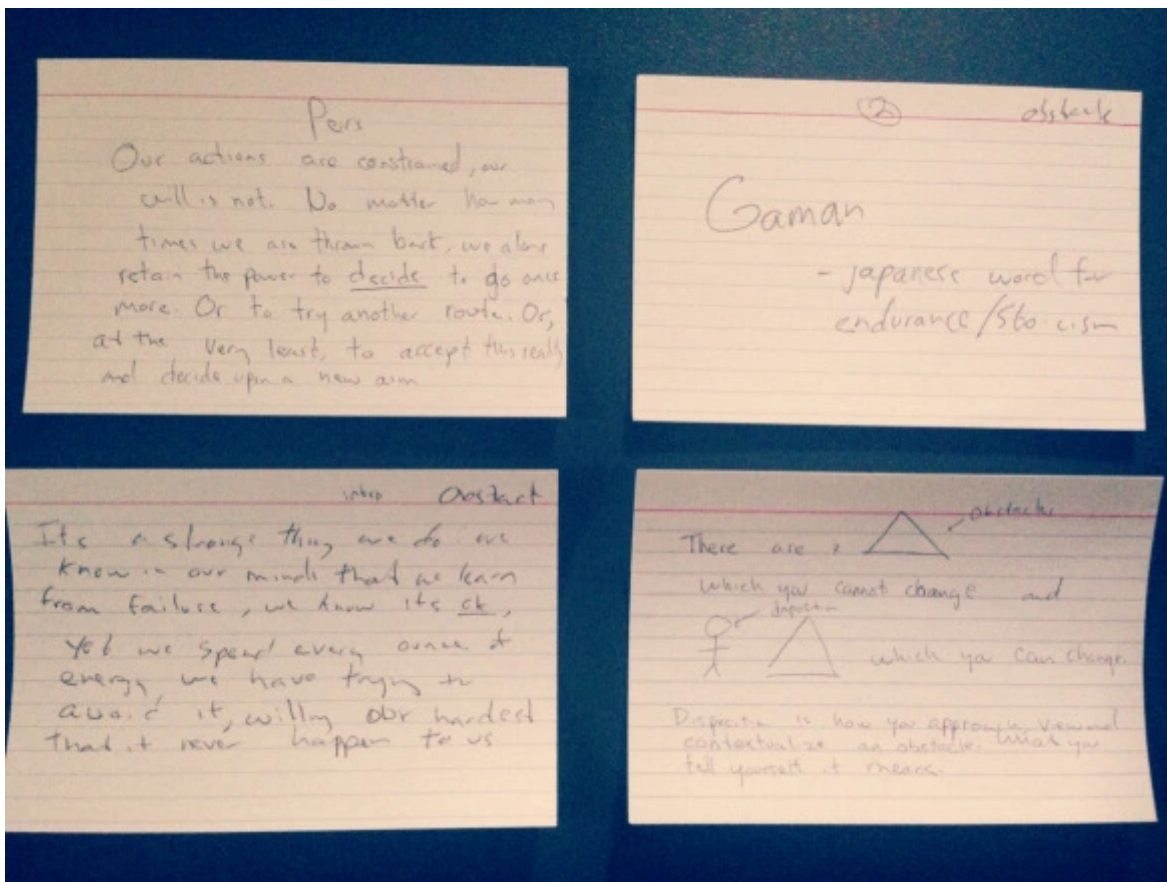 Pers
Our actions are constrained, our
will is not. No matter how many
times we are thrown back, we alone
retain the power to decide to go once
more. Or to try another route. Or,
at the very least, to accept this reality
and decide upon a new aim
② obstacle
Gaman
- japanese word for
endurance/Stoicism
intro Obstacl
Its a strange thing we do we
know in our minds that we learn
from failure, we know its ck,
yet we spend every ounce of
energy we have trying to
avoid it, willing our hardest
that it never happen to us
obstacles
There are
which you cannot change and
which you can change.
Disposition is how you approach, view and
contextualize an obstacle. What you
tell yourself it means.